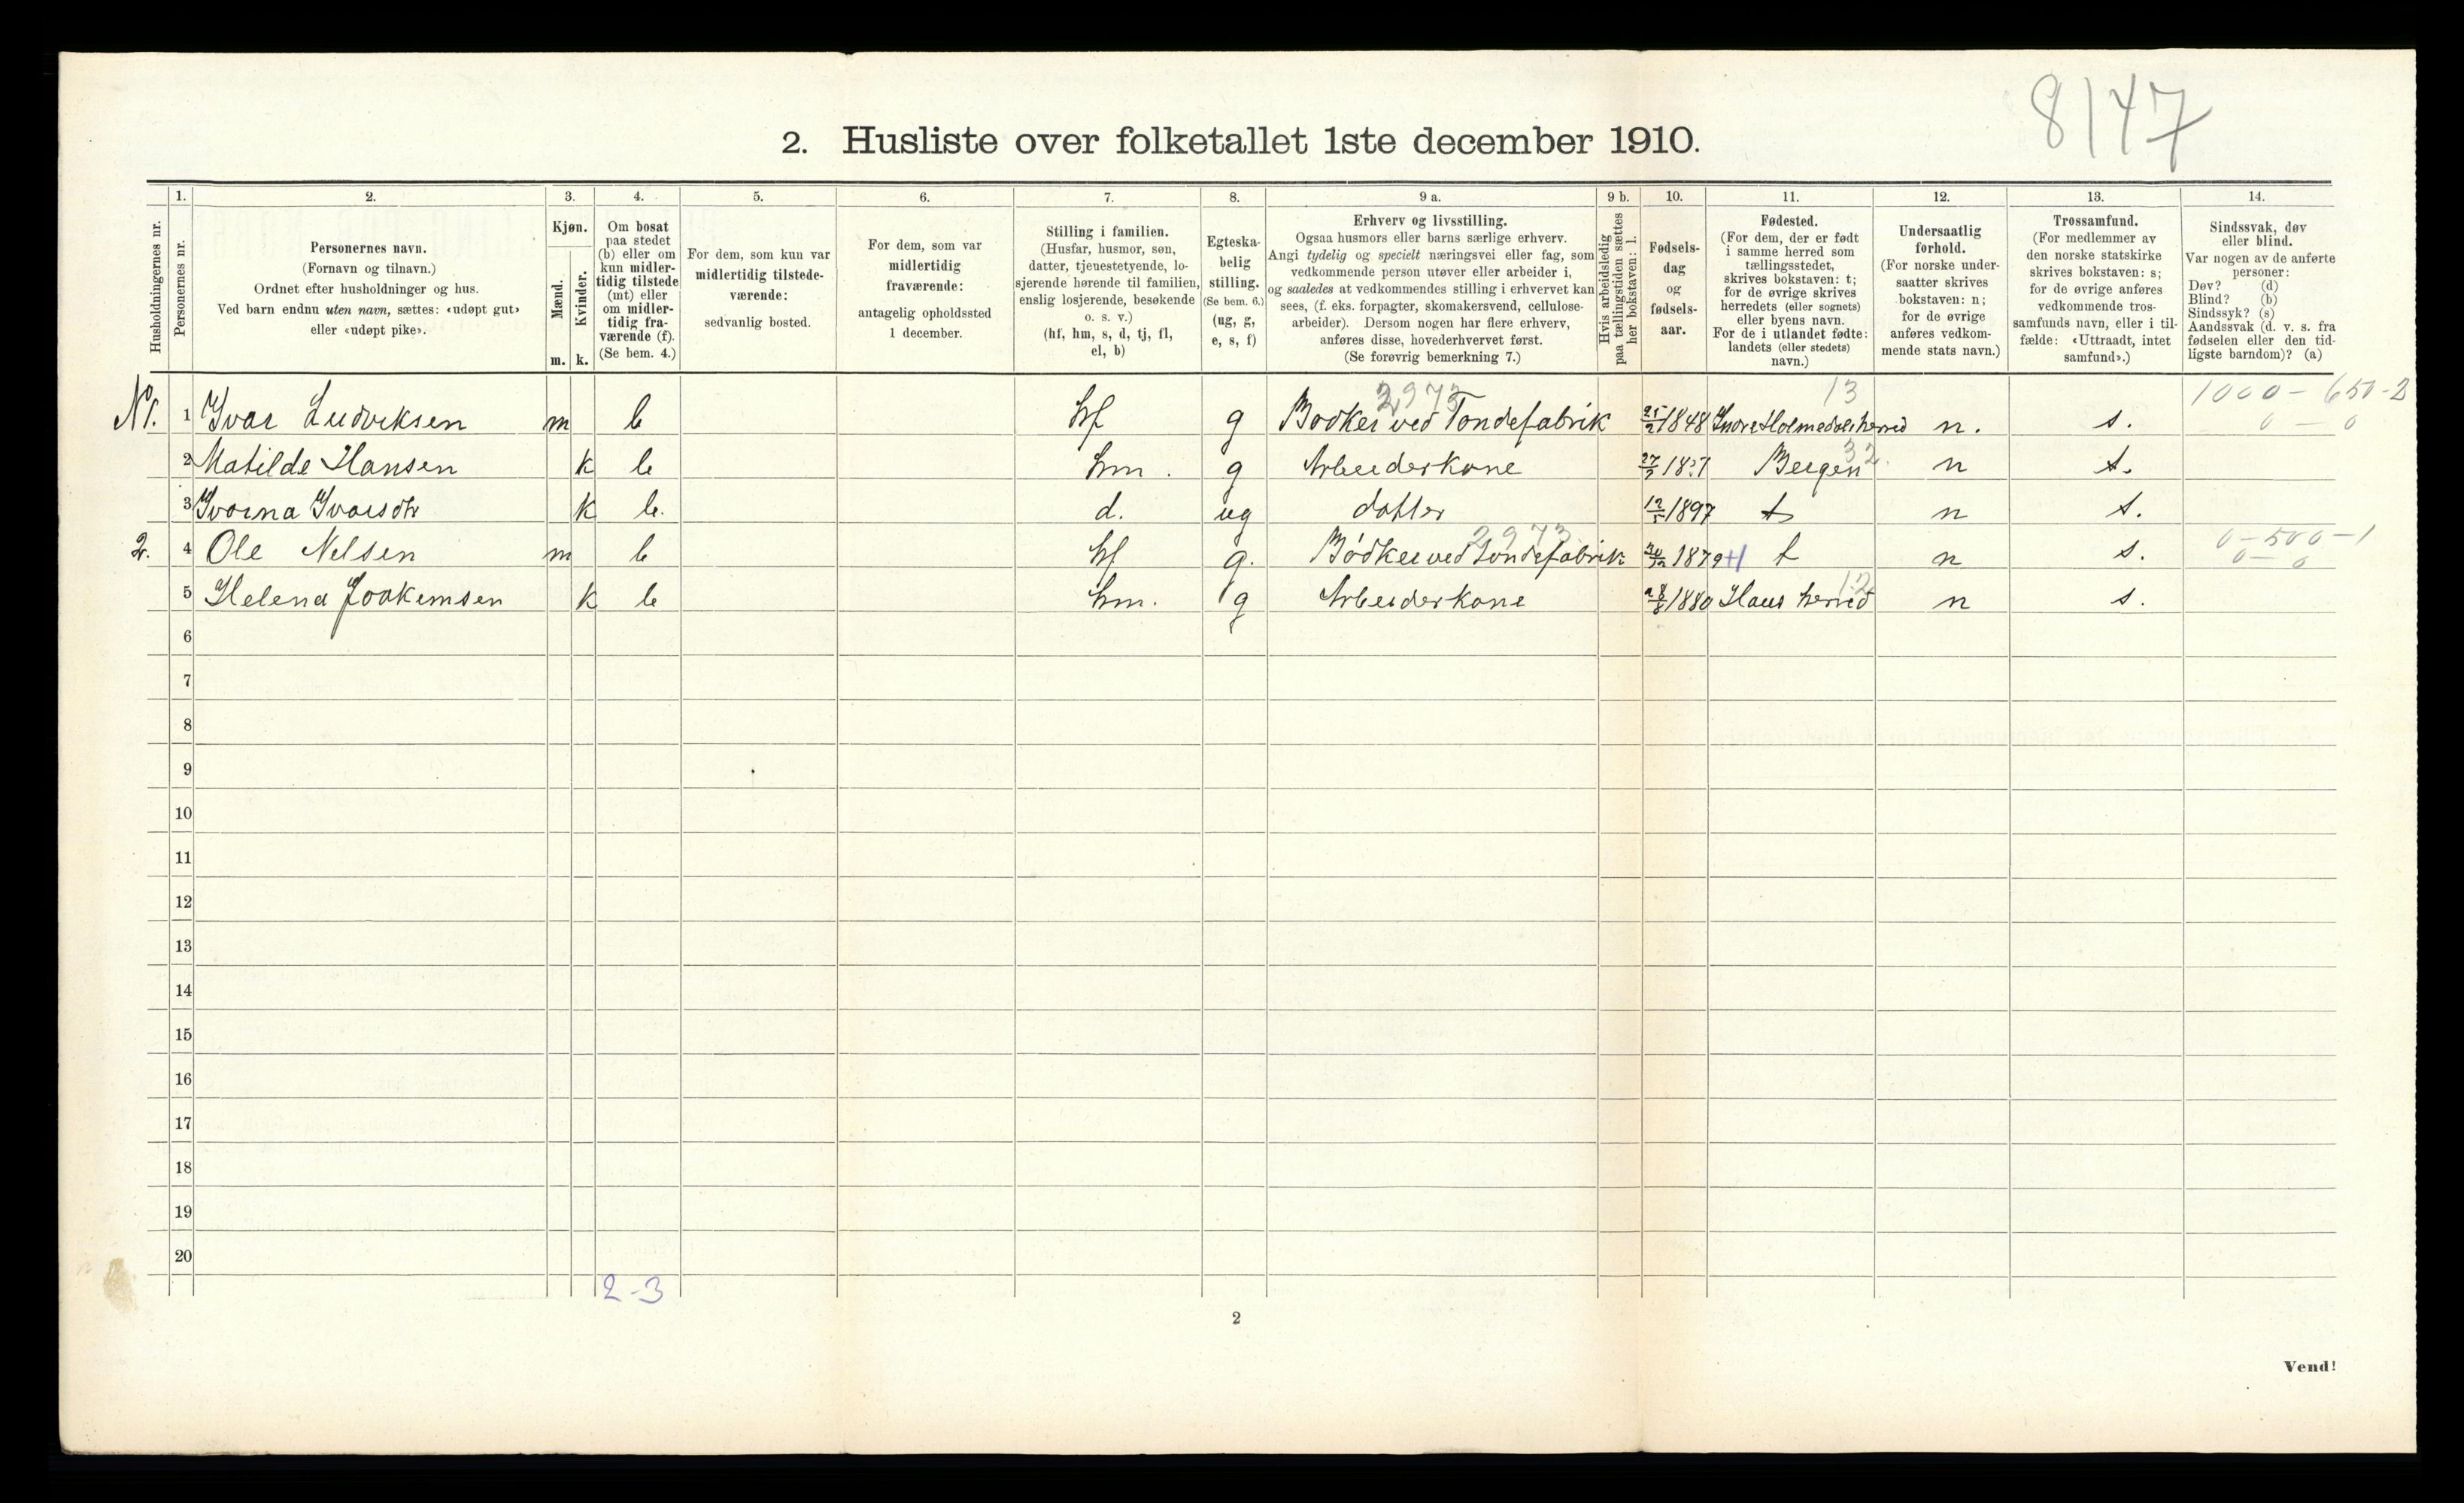 8147
2. Husliste over folketallet 1ste december 1910.
Husholdningernes nr.
1.
Personernes nr.
2.
Personernes navn.
(Fornavn og tilnavn.)
Ordnet efter husholdninger og hus.
Ved barn endnu uten navn, sættes: «udøpt gut»
eller «udøpt pike».
3.
Kjøn.
Mænd.
Kvinder.
m. k.
4.
Om bosat
paa stedet
(b) eller om
kun midler-
tidig tilstede
(mt) eller
om midler-
tidig fra-
værende (f).
(Se bem. 4.)
5.
For dem, som kun var
midlertidig tilstede-
værende:
sedvanlig bosted.
6.
For dem, som var
midlertidig
fraværende:
antagelig opholdssted
1 december.
7.
Stilling i familien.
(Husfar, husmor, søn,
datter, tjenestetyende, lo-
sjerende hørende til familien,
enslig losjerende, besøkende
o. s. v.)
(hf, hm, s, d, tj, fl,
el, b)
8.
Egteska-
belig
stilling.
(Se bem. 6.)
(ug, g,
e, s, f)
9 a.
Erhverv og livsstilling.
Ogsaa husmors eller barns særlige erhverv.
Angi tydelig og specielt næringsvei eller fag, som
vedkommende person utøver eller arbeider i,
og saaledes at vedkommendes stilling i erhvervet kan
sees, (f. eks. forpagter, skomakersvend, cellulose-
arbeider). Dersom nogen har flere erhverv,
anføres disse, hovederhvervet først.
(Se forøvrig bemerkning 7.)
9 b.
Hvis arbeidsledig
paa tællingstiden sættes
her bokstaven: l.
10.
Fødsels-
dag
og
fødsels-
aar.
11.
Fødested.
(For dem, der er født
i samme herred som
tællingsstedet,
skrives bokstaven: t;
for de øvrige skrives
herredets (eller sognets)
eller byens navn.
For de i utlandet fødte:
landets (eller stedets)
navn.)
12.
Undersaatlig
forhold.
(For norske under-
saatter skrives
bokstaven: n;
for de øvrige
anføres vedkom-
mende stats navn.)
13.
Trossamfund.
(For medlemmer av
den norske statskirke
skrives bokstaven: s;
for de øvrige anføres
vedkommende tros-
samfunds navn, eller i til-
fælde: «Uttraadt, intet
samfund».)
14.
Sindssvak, døv
eller blind.
Var nogen av de anførte
personer:
Døv? (d)
Blind? (b)
Sindssyk? (s)
Aandssvak (d. v. s. fra
fødselen eller den tid-
ligste barndom)? (a)
2973 13 1000 - 650 - 2
N1. 1 Yvar Ludviksen m b hf g Bodker ved Tondefabrik 25/2 1848 Indre Holmedals herred n. s. 0 - 0
32
2 Matilde Hansen k b hm. g Arbeiderkone Bergen n s.
3 Yvarna Yvarsdtr k b. d. ug dotter 12/5 1897 t n s.
2973 0 - 500 - 1
2. 4 Ole Nelsen m b hf g. Bödker ved tondefabrik 1879 +1 t n s. 0 - 0
12
5 Helena Joakemsen k b hm. g Arbeiderkone 28/8 1880 Haus herred n s.
6
7
8
9
10
11
12
13
14
15
16
17
18
19
20
2-3
2
Vend!